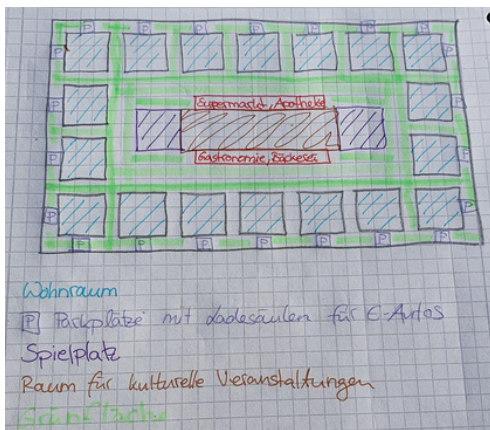 P P P P P P P
P P
P P
Supermarkt, Apotheke
P P
Gastronomie, Bäckerei
P P
P P P P P P P
Wohnraum
P Parkplätze mit Ladesäulen für E-Autos
Spielplatz
Raum für kulturelle Veranstaltungen
Grünfläche